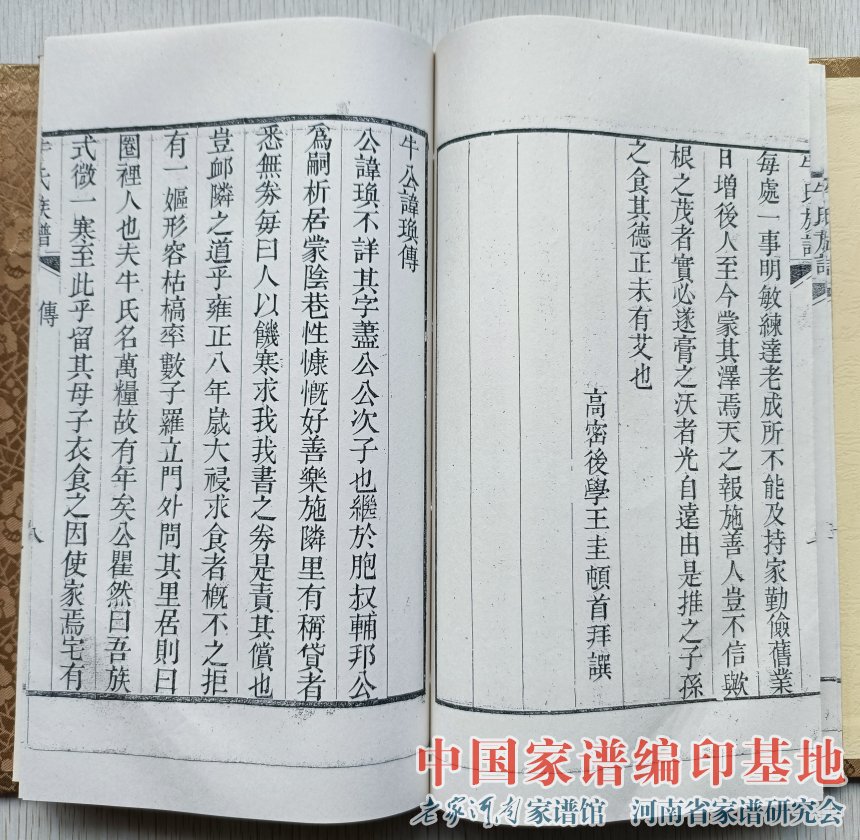 每處一事明敏練達老成所不能及持家勤儉舊業
日增後人至今蒙其澤焉天之報施善人豈不信歟
根之茂者實必遂膏之沃者光自遠由是推之子孫
之食其德正未有艾也
高密後學王圭頓首拜譔
牛公諱瑍傳
公諱瑍不詳其字藎公公次子也繼於胞叔輔邦公
爲嗣析居蒙陰巷性慷慨好善樂施隣里有稱貸者
悉無券每曰人以饑寒求我我書之券是責其償也
豈卹隣之道乎雍正八年歲大祲求食者概不之拒
有一嫗形容枯槁率數子羅立門外問其里居則曰
圈裡人也夫牛氏名萬糧故有年矣公瞿然曰吾族
式微一寒至此乎留其母子衣食之因使家焉宅有
牛氏族譜
傳
八
中国家谱编印基地
老家河南家谱馆 河南省家谱研究会